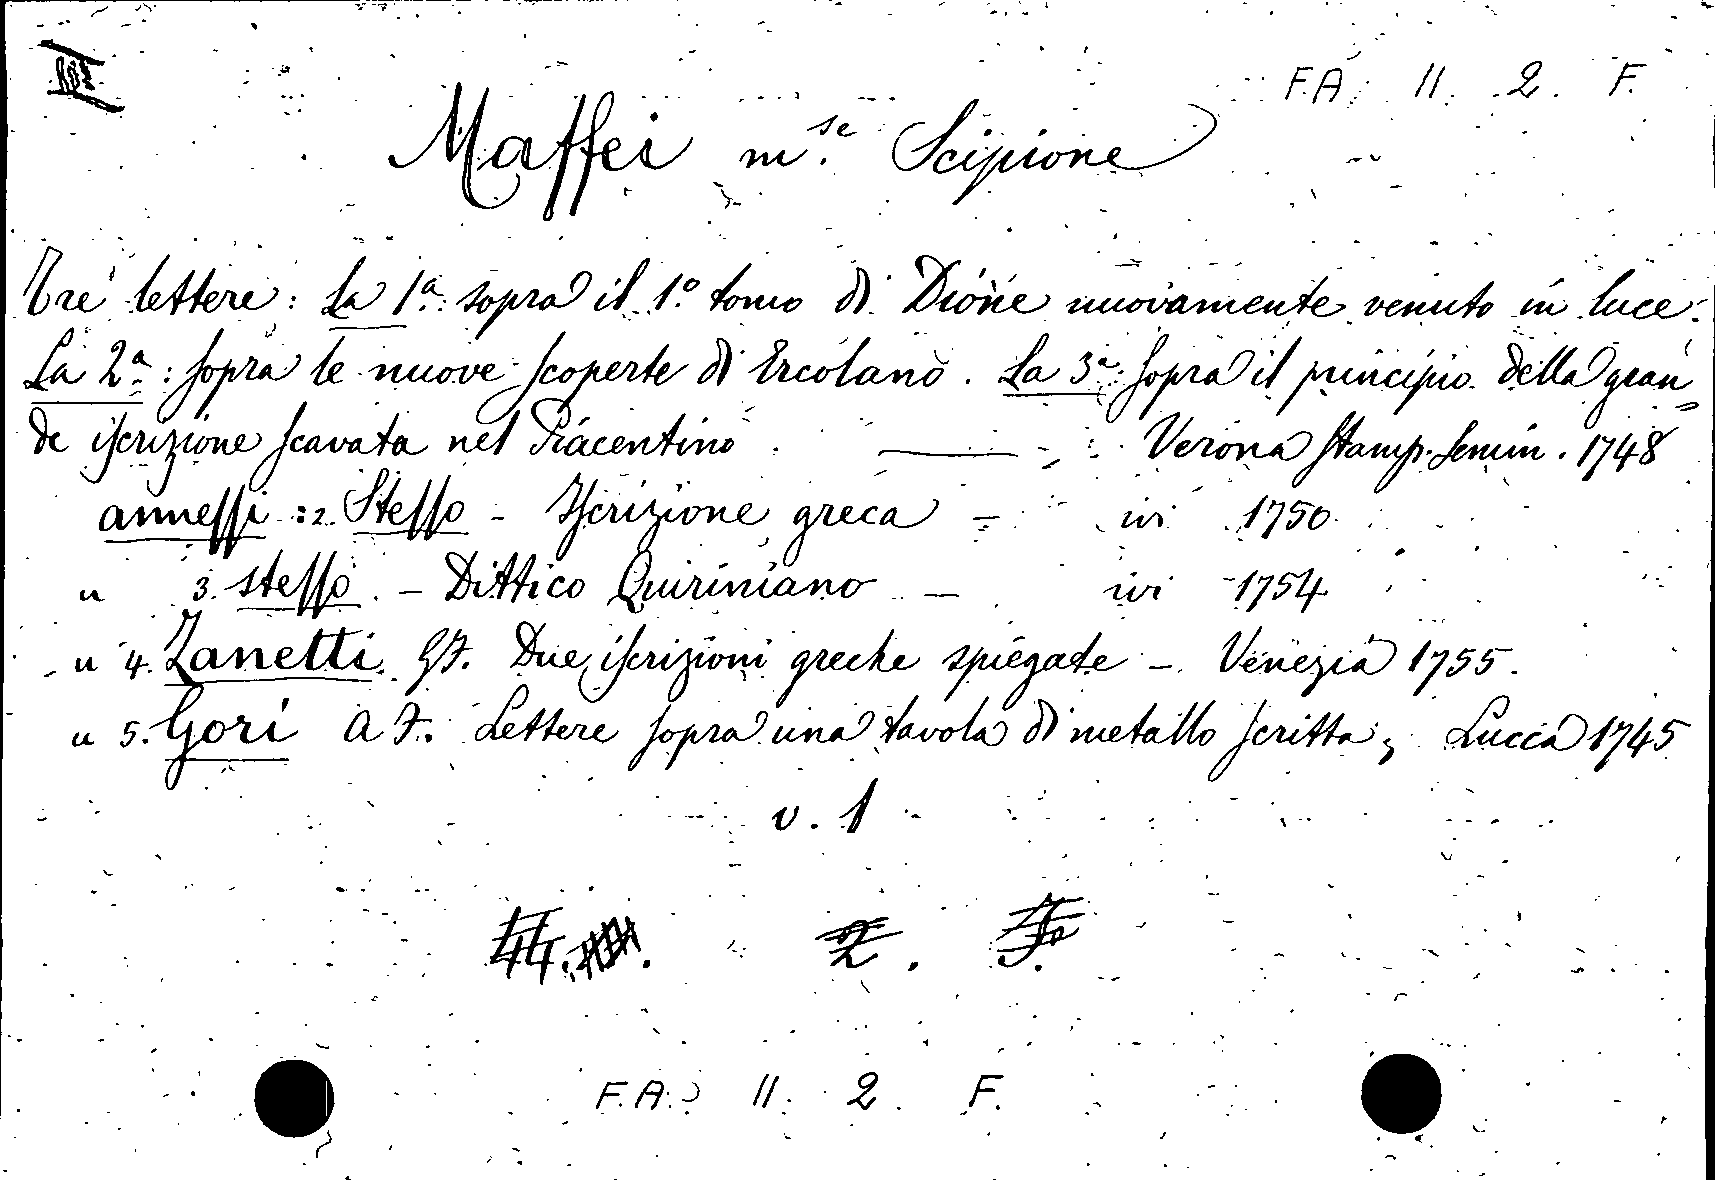 III
F.A. II. 2. F.
Maffei m.se Scipione
Tre lettere: La 1a sopra il 1.o tomo di Dione nuovamente venuto in luce.
La 2a: sopra le nuove scoperte di Ercolano. La 3a sopra il principio della gran=
de iscrizione scavata nel Piacentino. — Verona Stamp. Semin. 1748
annessi: 2. Stesso - Iscrizione greca - ivi 1750
" 3. stesso. - Dittico Quiriniano - ivi 1754
" 4. Zanetti G.F. Due iscrizioni greche spiegate - Venezia 1755.
" 5. Gori A F. Lettere sopra una tavola di metallo scritta; Lucca 1745
v. 1
2.
F.A. II. 2. F.